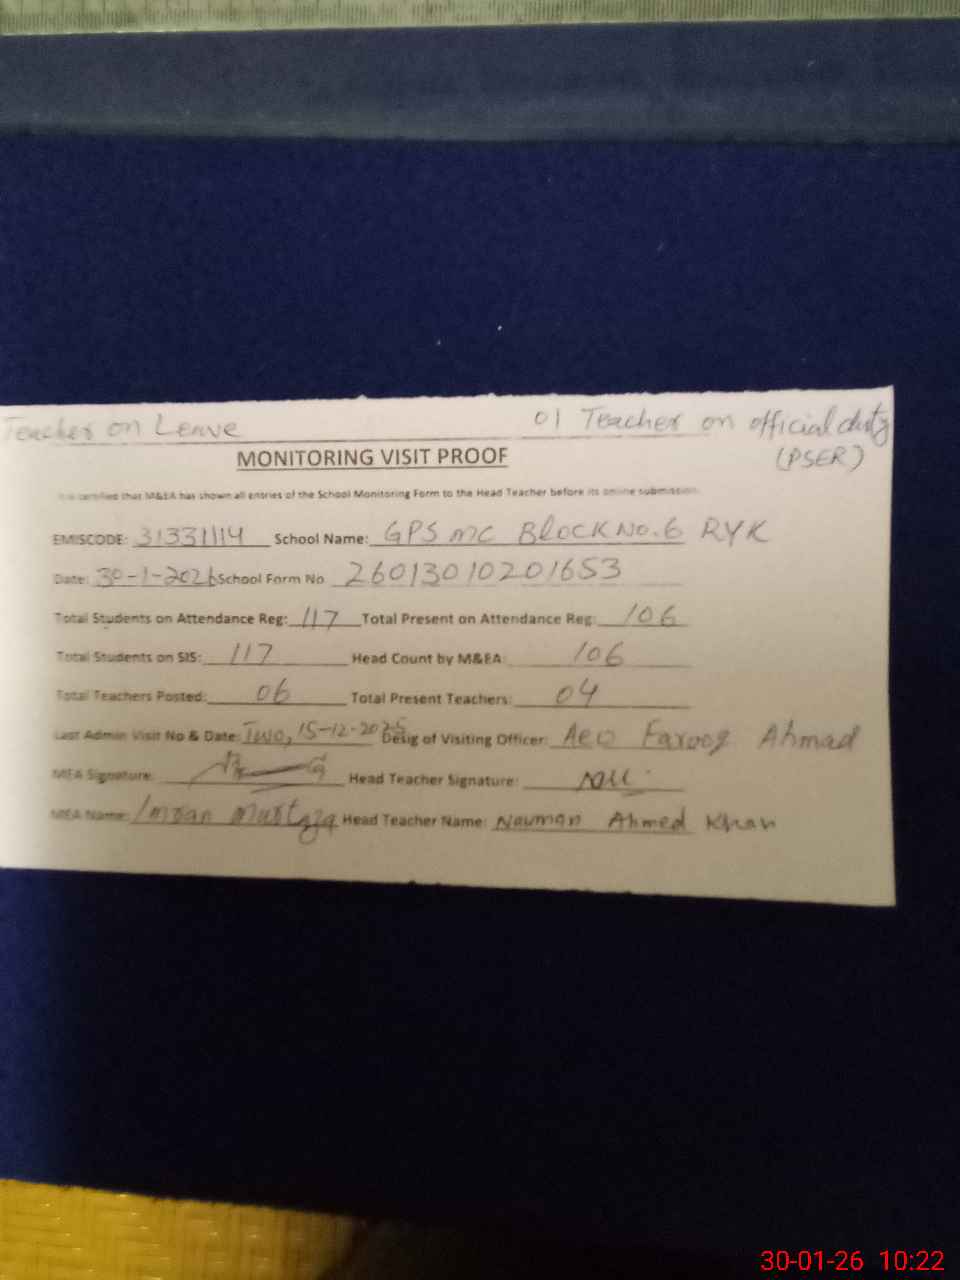 Teacher on Leave 01 Teacher on official duty
(PSER)
MONITORING VISIT PROOF
It is certified that M&EA has shown all entries of the School Monitoring Form to the Head Teacher before its online submission.
EMISCODE: 31331114 School Name: GPS MC Block No. 6 RYK
Date: 30-1-2026 School Form No 26013010201653
Total Students on Attendance Reg: 117 Total Present on Attendance Reg: 106
Total Students on SIS: 117 Head Count by M&EA: 106
Total Teachers Posted: 06 Total Present Teachers: 04
Last Admin Visit No & Date: Two, 15-12-2025 Desig of Visiting Officer: Aeo Farooq Ahmad
MEA Signature: Head Teacher Signature:
MEA Name: Imran Murtaza Head Teacher Name: Nauman Ahmed Khan
30-01-26 10:22